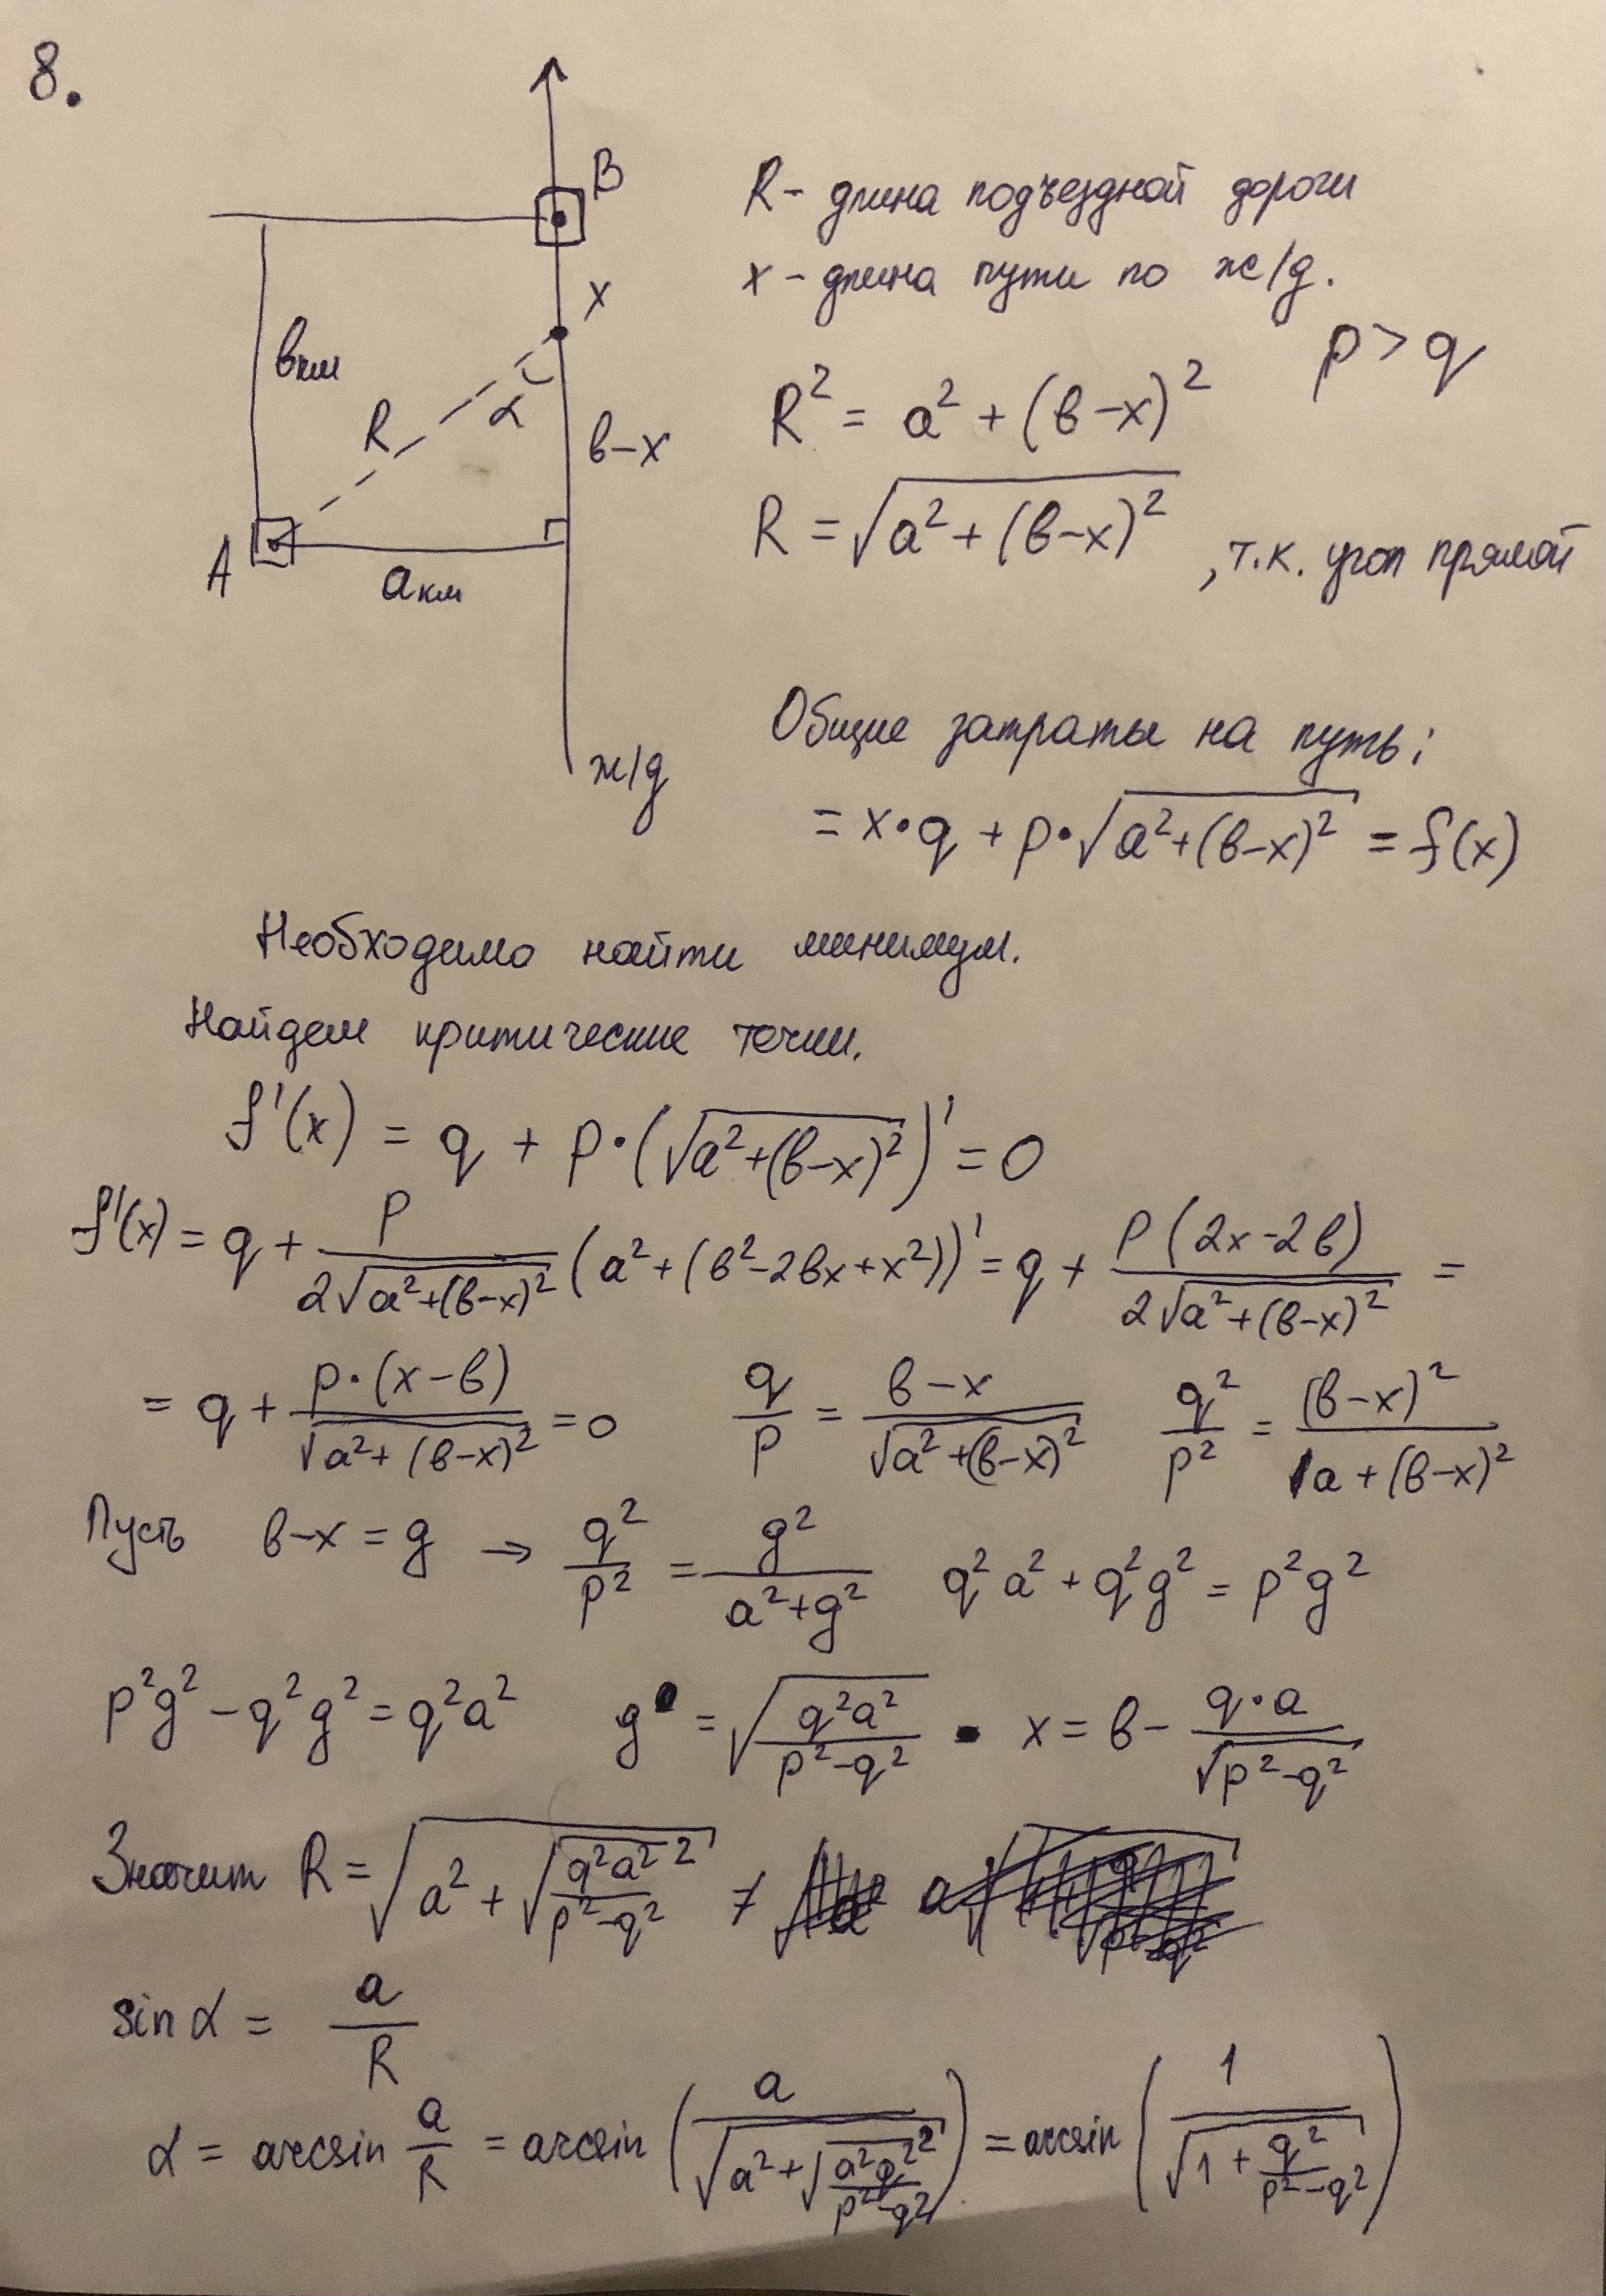 8.
B
x
в км
R
α
в-x
A
a км
ж/д
R - длина подъездной дороги
x - длина пути по ж/д.
p > q
R² = a² + (в-x)²
R = √(a² + (в-x)²) , т.к. угол прямой
Общие затраты на путь:
= x·q + p·√(a²+(в-x)²) = f(x)
Необходимо найти минимум.
Найдем критические точки.
f'(x) = q + p·(√(a²+(в-x)²))' = 0
f'(x) = q + p/(2√(a²+(в-x)²)) (a²+(в²-2вx+x²))' = q + p(2x-2в)/(2√(a²+(в-x)²)) =
= q + p·(x-в)/√(a²+(в-x)²) = 0 q/p = (в-x)/√(a²+(в-x)²) q²/p² = (в-x)²/(a+(в-x)²)
Пусть в-x = g → q²/p² = g²/(a²+g²) q²a² + q²g² = p²g²
p²g² - q²g² = q²a² g = √(q²a²/(p²-q²)) x = в - q·a/√(p²-q²)
Значит R = √(a² + √(q²a²/(p²-q²))²)
sin α = a/R
α = arcsin a/R = arcsin (a/√(a²+√(a²q²/(p²-q²))²)) = arcsin (1/√(1+q²/(p²-q²)))